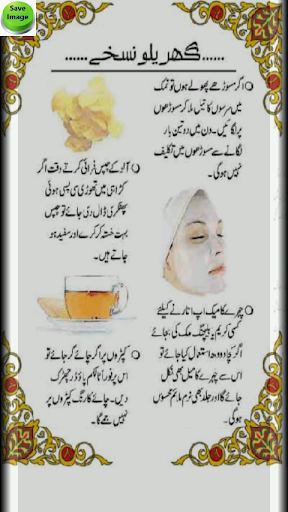 Save
Image
......گھریلو نسخے......
اگر مسوڑھے پھولے ہوں تو نمک
میں سرسوں کا تیل ملا کر مسوڑھوں
پر لگائیں۔ دن میں دو تین بار
لگانے سے مسوڑھوں میں تکلیف
نہیں ہوگی۔
آلو کے چپس فرائی کرتے وقت اگر
کڑاہی میں تھوڑی سی پسی ہوئی
پھٹکری ڈال دی جائے تو چپس
بہت خستہ کرکرے اور سفید ہو
جاتے ہیں۔
چہرے کا میک اپ اتارنے کیلئے
کسی کریم یا کلینزنگ ملک کی بجائے
اگر کچا دودھ استعمال کیا جائے تو
اس سے چہرے کا میل بھی نکل
جائے گا اور جلد بھی نرم ملائم محسوس
ہوگی۔
کپڑوں پر اگر چائے گر جائے تو
اس پر فوراً ٹالکم پاؤڈر چھڑک
دیں۔ چائے کا رنگ کپڑوں پر
نہیں جمے گا۔